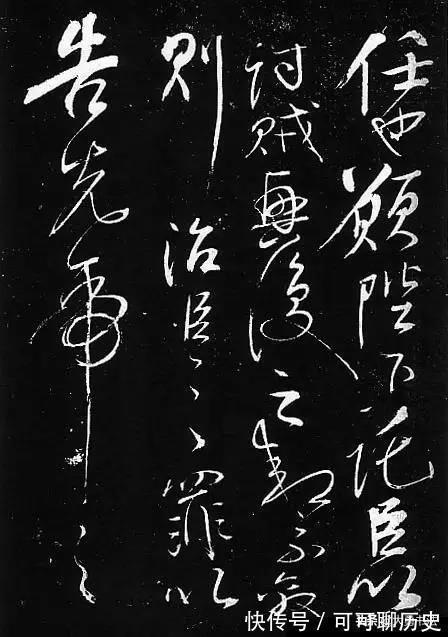 任也願陛下託臣以
討賊興復之效不效
則治臣之罪以
告先帝之
快传号 / 可可聊历史